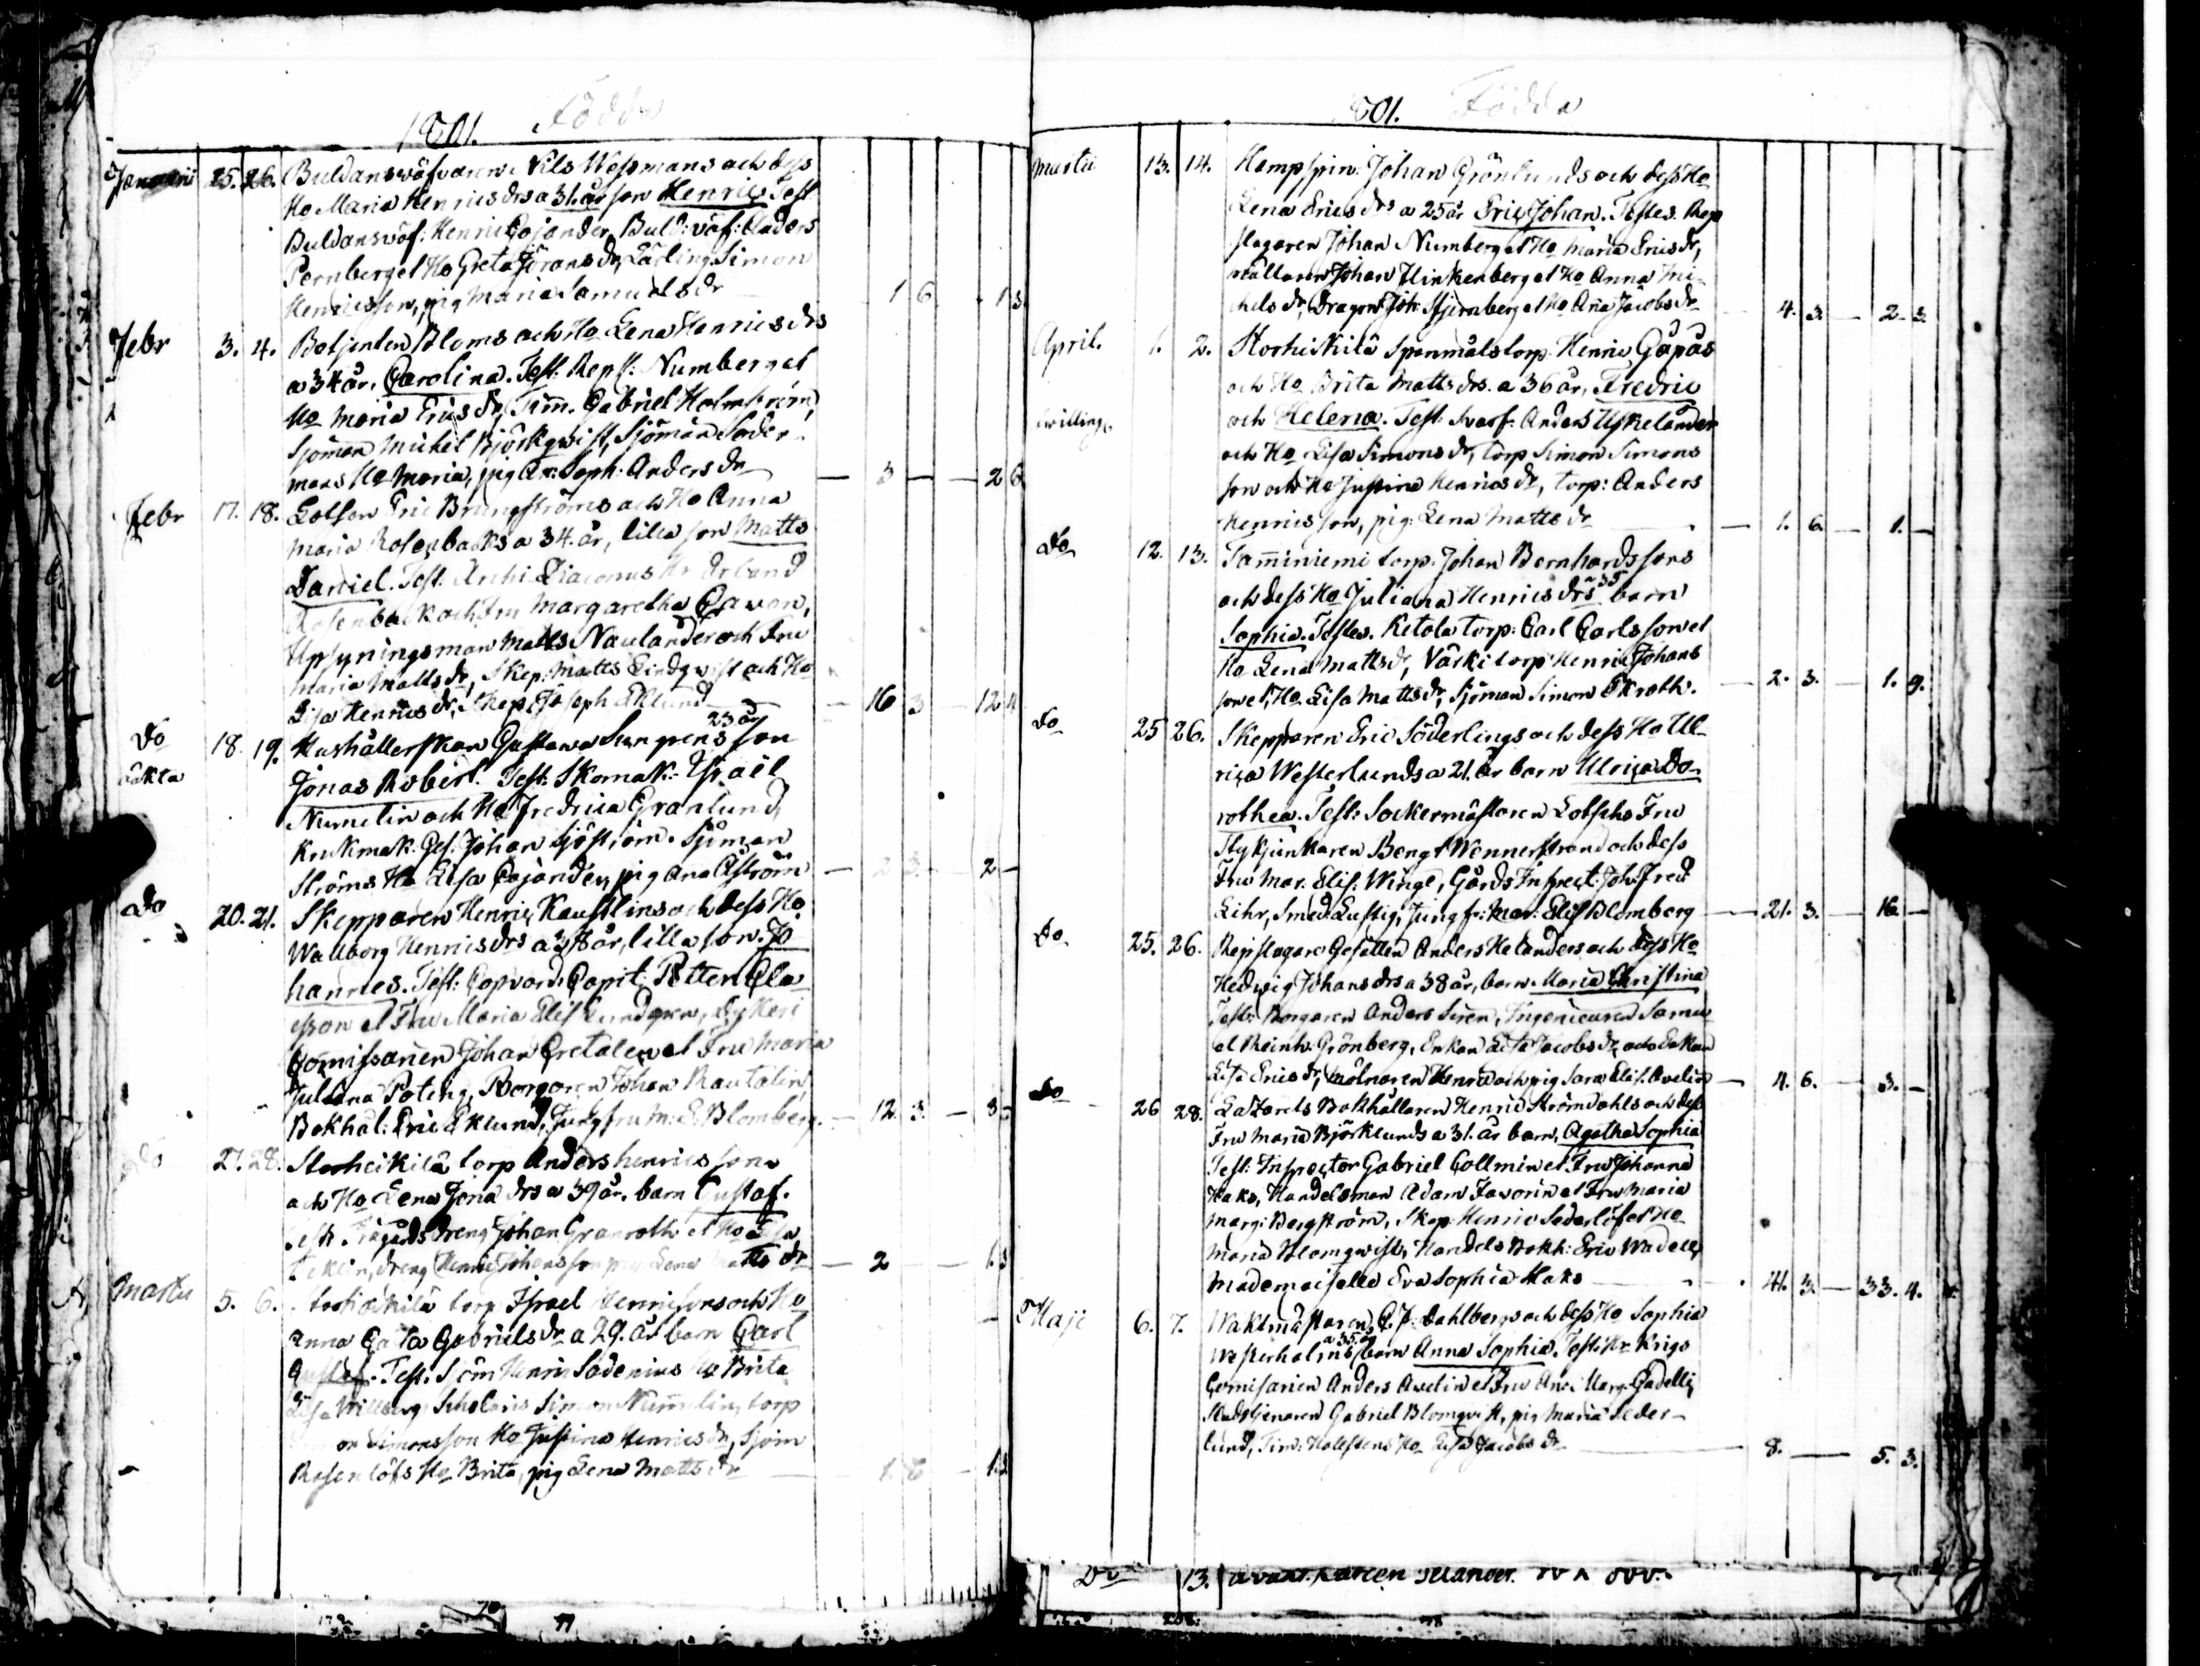 1801. Födda
Januarii 25. 26. Buldanswäfvaren Nils Wessmans och dess
Ho Maria Henricsdrs a 31. år son Henric Test
Buldanswäf: Henric Cajander, Buld: wäf: Anders
Pernberg et Ho Greta Jöransdr, Lärling Simon
Henricsson, pig Maria Samuelsdr 1 6 1 3
Febr 3. 4. Botjenten Bloms och Ho Lena Henricsdrs
a 34 år. Carolina. Test: Reps: Numberg et
Ho Maria Ericsdr, Tim. Gabriel Holmström,
Sjöman Michel Björkqwist, Sjöman Söder-
mans Ho Maria, pig An: Soph: Andersdr — 3 — 2 6
Febr 17. 18. Lotsen Eric Brungströms och Ho Anna
Maria Rosenbacks a 34. år, lilla son Matts
Daniel. Test: Archi Diaconus Hr Erland
Rosenback och Fru Margaretha Cavon,
Upsyningsman Matts Naulander och Fru
Maria Mattsdr, Skep: Matts Lindqwist och Ho
Lisa Henricsdr, Skep: Joseph Eklund — 16 3 — 12 4
Do 18. 19. Hushållerskan Gustava Sungrens 23 år son
oäkta Jonas Robert. Test: Skomak: Israel
Numelin och Ho Fredrica Granlund,
Krukmak: Ges. Johan Sjöström. Sjöman
Ströms Ho Lisa Cajander, pig Ana Åström — 2 3. — 2 —
Do 20. 21. Skepparen Henric Kaustlins och dess Ho
Wallborg Henricsdrs a 38 år, lilla son. Jo
hannes. Test: Copvard: Capit: Petter Cla
esson et Fru Maria Elis Lundgren, Tykeri
Comissarien Johan Cretalen et Fru Maria
Juliana Poteng, Borgaren Johan Rautalin,
Bokhål: Eric Eklund, Jungfru M: E: Blomberg. — 12 3. — 8 —
Do 27. 28. Storheikilä torp Anders Henricssons
och Ho Lena Jona drs a 39 år. barn Gustaf.
Test: Trägårds dreng Johan Granroth et Ho Lisa
dreng Henric Johansson pig Lena Matts dr — 2 — 1. 3
Martii 5. 6. Storheikilä torp Israel Henricsons och Ho
Anna Cajsa Gabrielsdr a 29. år barn Carl
Gustaf. Test: Sjöm Henric Södenius Ho Brita
Lisa Willberg Scholaris Simon Numelin, torp
Simon Simonsson Ho Justina Henricsdr, Sjöm
Rosenlöfs Ho Brita, pig Lena Mattsdr — 1. 6 — 1. 3
77
1801. Födda
Martii 13. 14. Hampspin: Johan Grönlunds och dess Ho
Lena Ericsdrs a 25 år Eric Johan. Testes. Rep
slagaren Johan Numberg et Ho Maria Ericsdr,
målaren Johan Flinkenberg et Ho Anna Mi-
chelsdr, Dragon Joh: Stjernberg et Ho Ana Jacobsdr — 4. 3. — 2. 3.
April. 1. 2. Storheikilä Spanmålstorp: Henric Gåpås
och Ho Brita Mattsdrs. a 36 år, Fredric
twilling. och Helena. Test: Svarf: Anders Uskelander
och Ho Lisa Simonsdr, torp Simon Simons
son och Ho Justina Henricsdr, torp: Anders
Henricsson, pig: Lena Mattsdr — 1. 6. — 1. —
Do 12. 13. Tamminiemi torp. Johan Bernhardssons
och dess Ho Juliana Henricsdrs a 35 barn
Sophia. Testes. Ketola torp: Carl Carlsson et
Ho Lena Mattsdr, Värki torp Henric Johans
son et Ho Lisa Mattsdr, Sjöman Simon Ekroth. — 2. 3. — 1. 9.
Do 25 26. Skepparen Eric Söderlings och dess Ho Ul-
rica Westerlunds a 21. år barn Ulrica Do-
rothea. Test: Sockermästaren Lotschs Fru
Stykjunkaren Bengt Wennerstrand och dess
Fru Mar. Elis: Winge, Gårds Inspect: Joh: Fred:
Lihr, Smed: Lustig, Jungfr: Mar: Elis Blomberg — 21. 3. — 16. —
Do 25. 26. Repslagare Gesällen Anders Helanders och dess Ho
Hedwig Johansdrs a 38 år, barn Maria Christina
Test: Borgaren Anders Siren, Ingenieuren Samu-
el Reinh: Grönberg, Enkan Lisa Jacobsdr, och Enkan
Lisa Ericsdr, Mölnaren Henric och pig Sara Elis. Avelin — 4. 6. — 3. —
Do 26 28. Lazarets Bokhållaren Henric Strömdahls och dess
Fru Maria Björklunds a 31. år barn, Agatha Sophia
Test: Inspector Gabriel Collmin et Fru Johanna
Haks, Handelsman Adam Favorin et Fru Maria
Marg: Bergström, Skep: Henric Sederlöf et Ho
Maria Blomqwist, Handels Bokh: Eric Wadell,
Mademoiselle Eva Sophia Haks — 41. 3. — 33. 4.
Maji 6. 7. Waktmästaren C. F. Dahlbergs och dess Ho Sophia
Westerholms a 35 år barn Anna Sophia. Test: Hr Krigs
Comisarien Anders Avelin et Fru An: Marg: Gadelli,
Stadstjenaren Gabriel Blomqvist, pig Maria Seder-
lund, Tim: Hollstens Ho Lisa Jacobsdr — 8. — 5. 3.
Do 13.
78